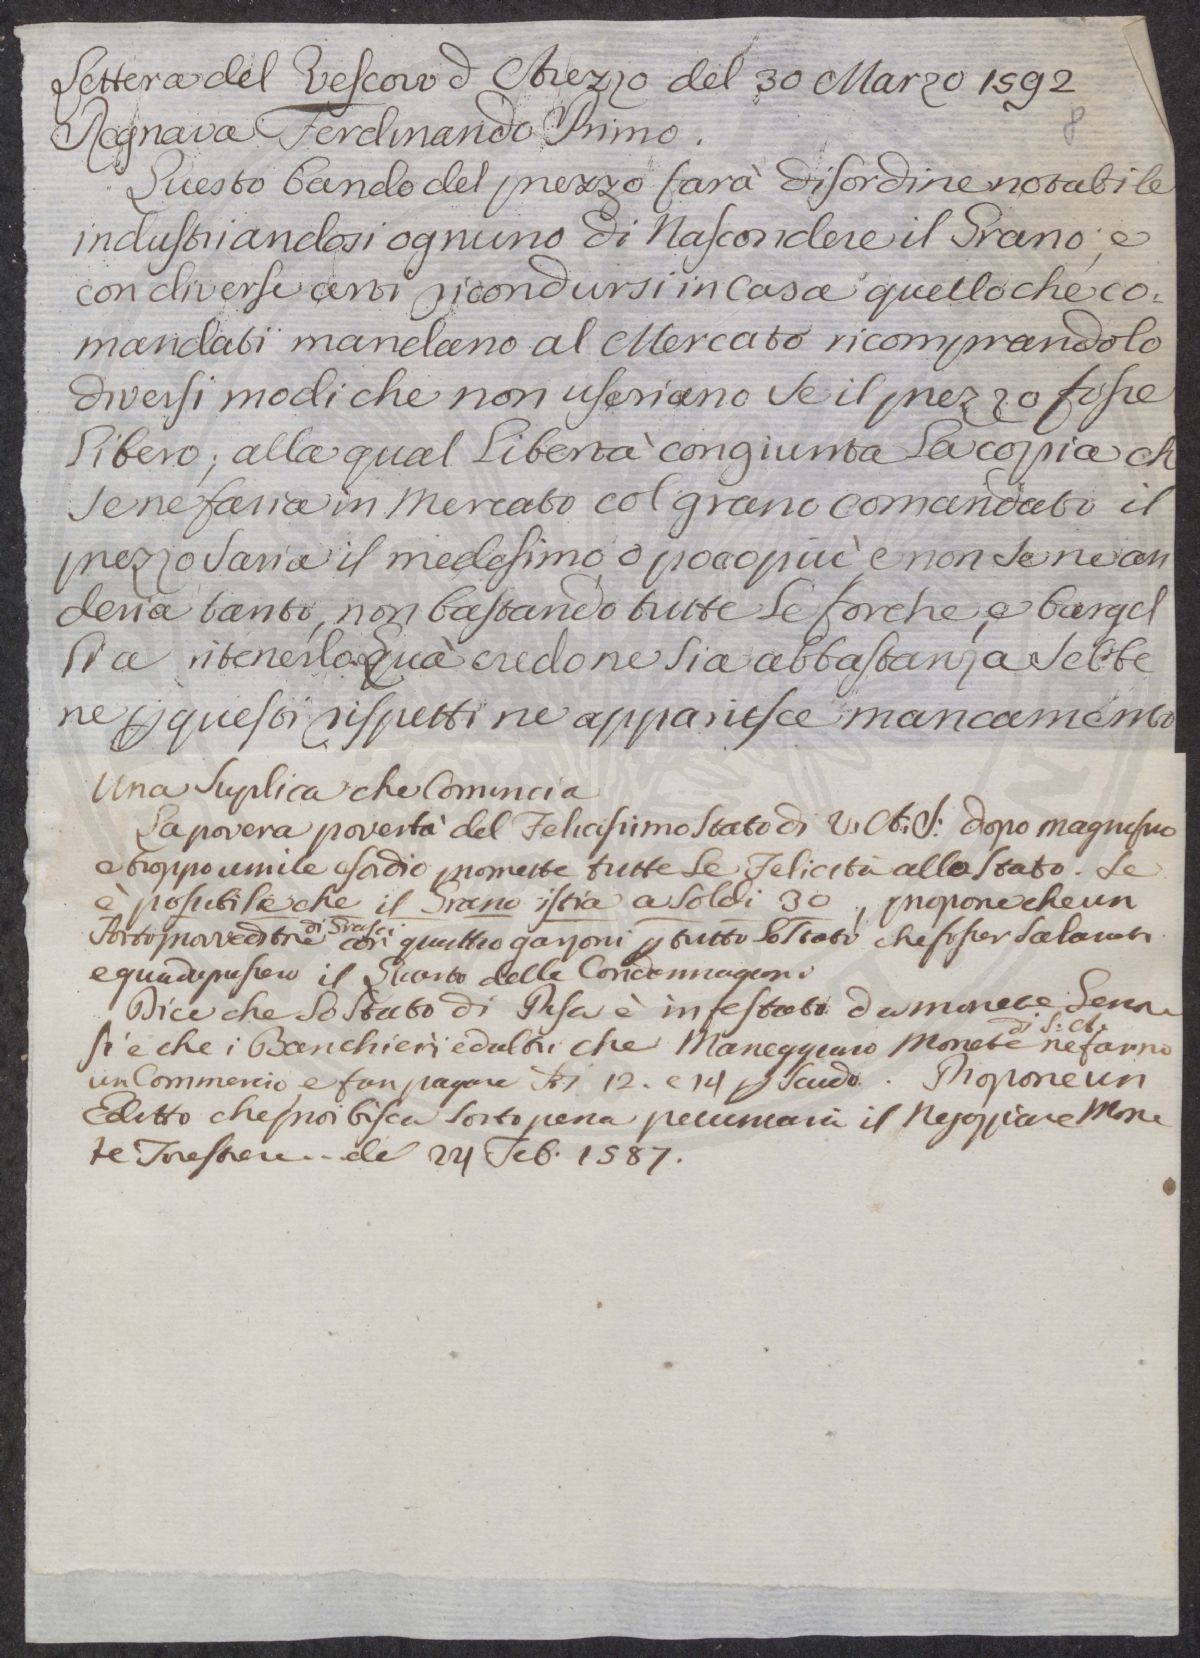 Lettera del Vescovo d'Arezzo del 30 Marzo 1592
8
Regnava Ferdinando Primo.
Questo bando del prezzo farà disordine notabile
industriandosi ognuno di Nascondere il Grano, e
con diverse arti ricondursi in Casa quello che co=
mandati mandano al Mercato ricomprandolo
diversi modi che non useriano se il prezzo fosse
Libero, alla qual Libertà congiunta la coppia ch
se ne faria in Mercato col grano comandato il
prezzo saria il medesimo, o poco più e non se ne an
deria tanto, non bastando tutte le forche, e bargel
li a ritenerlo. Quà credo ne sia abbastanza sebbe
ne p questi rispetti ne apparisce mancamento
Una Suplica che Comincia
La povera povertà del Felicissimo Stato di V. A. S: dopo magnifico
e troppo umile esordio promette tutte le Felicità allo Stato. Se
è possibile che il Grano istia a Soldi 30, propone che un
di Grascia
Sotto provveditore con quattro garzoni p tutto lo Stato che fosser Salariati
e guadagnassero il Quarto delle Condennagioni
Dice che lo Stato di Pisa è infestato da monete Geno=
di S: A.
si e che i Banchieri ed altri che Maneggiano Monete ne fanno
un Commercio, e fan pagare 12. e 14 p Scudo. Propone un
Editto che proibisca sotto pena pecuniaria il Negoziare Mone
te Forestiere.. de 24 Feb. 1587.